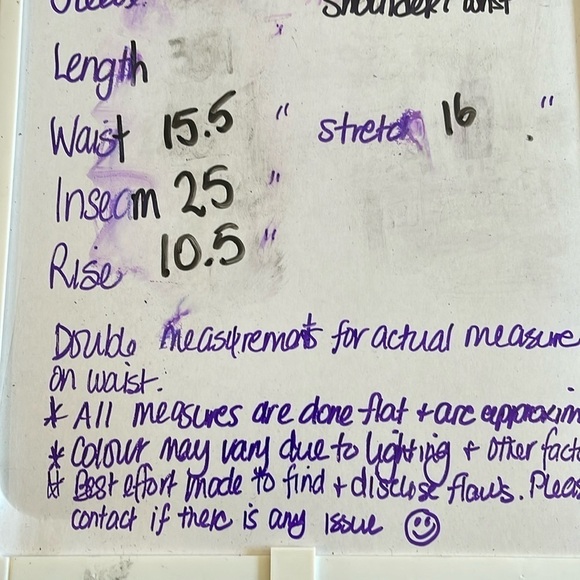 Length
Waist 15.5 " stretch 16 . "
Inseam 25 "
Rise 10.5 "
Double measurements for actual measure
on waist.
* All measures are done flat + are approxim
* Colour may vary due to lighting + other facto
* Best effort made to find + disclose flaws. Pleas
contact if there is any issue ☺